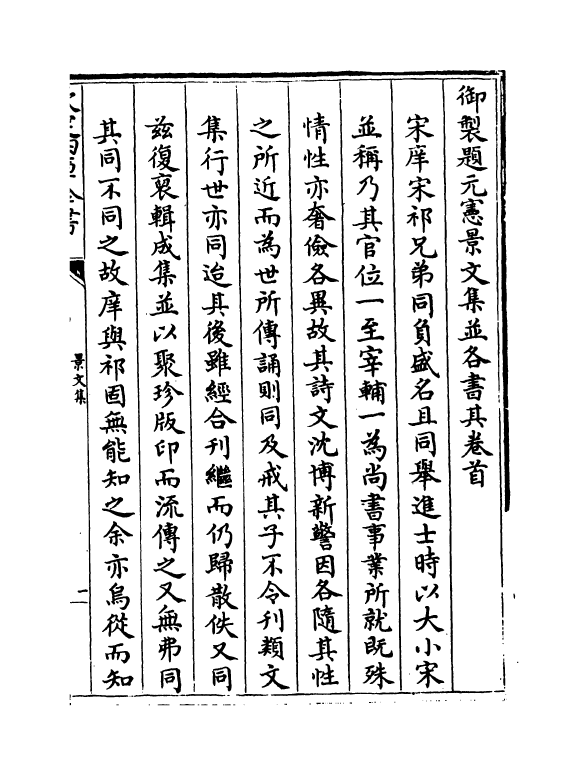 御製題元憲景文集並各書其卷首
宋庠宋祁兄弟同負盛名且同舉進士時以大小宋
並稱乃其官位一至宰輔一為尚書事業所就既殊
情性亦奢儉各異故其詩文沈博新警因各隨其性
之所近而為世所傳誦則同及戒其子不令刊類文
集行世亦同迨其後雖經合刊繼而仍歸散佚又同
茲復裒輯成集並以聚珍版印而流傳之又無弗同
其同不同之故庠與祁固無能知之余亦烏從而知
欽定四庫全書
景文集
二